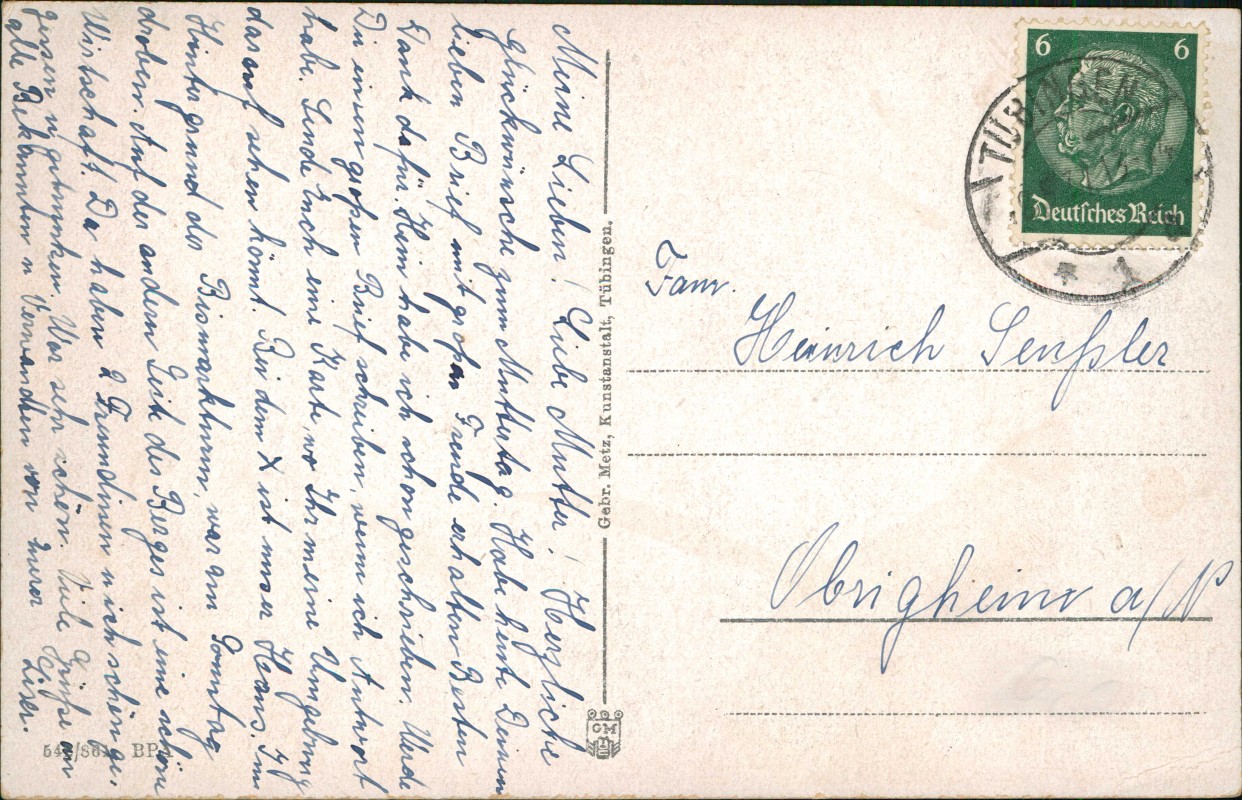 Meine Lieben! Liebe Mutter! Herzliche
Glückwünsche zum Muttertag. Habe heute Deinen
lieben Brief mit großer Freude erhalten. Besten
Dank dafür. Heim habe ich schon geschrieben. Werde
Dir einen großen Brief schreiben, wenn ich Antwort
habe. Sende Euch eine Karte, wo Ihr meine Umgebung
darauf sehen könnt. Bei dem X ist unser Haus. Im
Hintergrund der Bismarkturm, war am Sonntag
droben. Auf der andern Seite des Berges ist eine schöne
Wirtschaft. Da haben 2 Freundinen u ich schön ge-
gessen u getrunken. War sehr schön. Viele Grüße an
alle Bekannten u Verwandten von Eurer Liesel.
Gebr. Metz, Kunstanstalt, Tübingen.
GM
BPA
6 6
Deutsches Reich
TÜBINGEN
* 1
Fam.
Heinrich Senßler
Obrigheim a/N